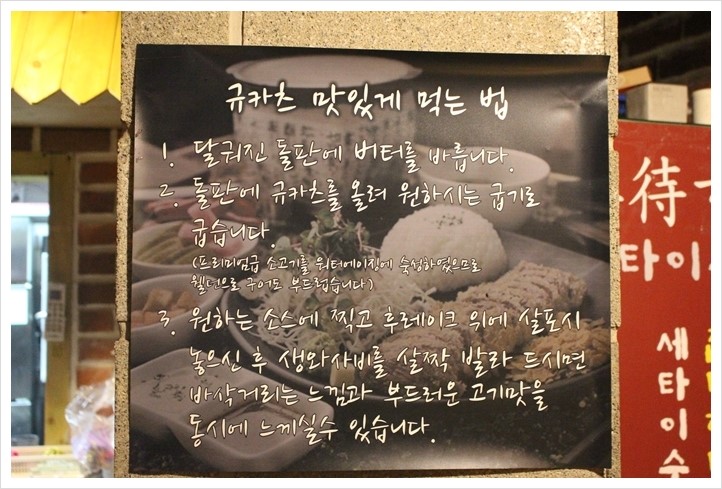 규카츠 맛있게 먹는 법
1. 달궈진 돌판에 버터를 바릅니다.
2. 돌판에 규카츠를 올려 원하시는 굽기로
굽습니다.
(프리미엄급 소고기를 워터에이징에 숙성하였으므로
웰던으로 구어도 부드럽습니다)
3. 원하는 소스에 찍고 후레이크 위에 살포시
놓으신 후 생와사비를 살짝 발라 드시면
바삭거리는 느낌과 부드러운 고기맛을
동시에 느끼실수 있습니다.
待
타이
세
타
이
수